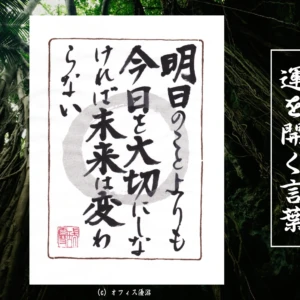 運を開く言葉
明日のことよりも
今日を大切にしな
ければ未来は変わ
らない
(c) オフィス優沼